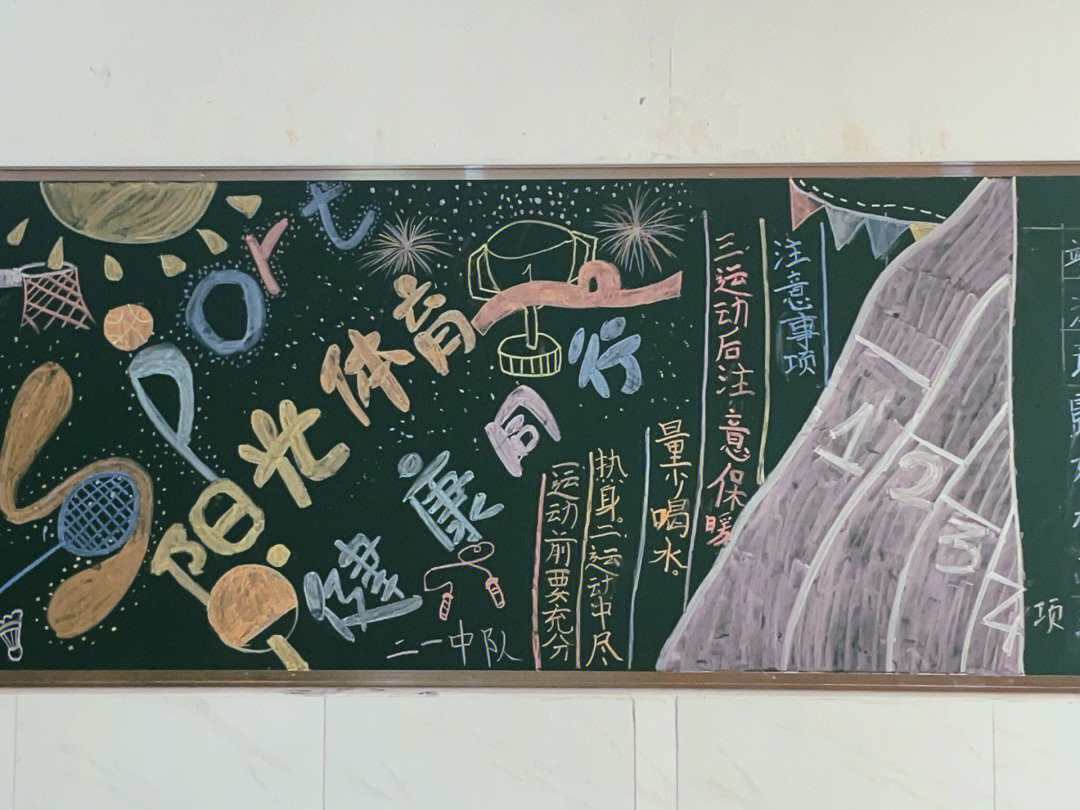 Sport
阳光体育
健康同行
二一中队
注意事项
(运动前要充分
热身。二运动中尽
量少喝水。
三运动后注意保暖
1
2
3
4
项